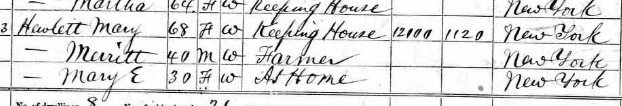 — Martha 64 F W Keeping House New York
3 Hawlett Mary 68 F W Keeping House 12000 1120 New York
— Merritt 40 M W Farmer New York
— Mary E 30 F W At Home New York